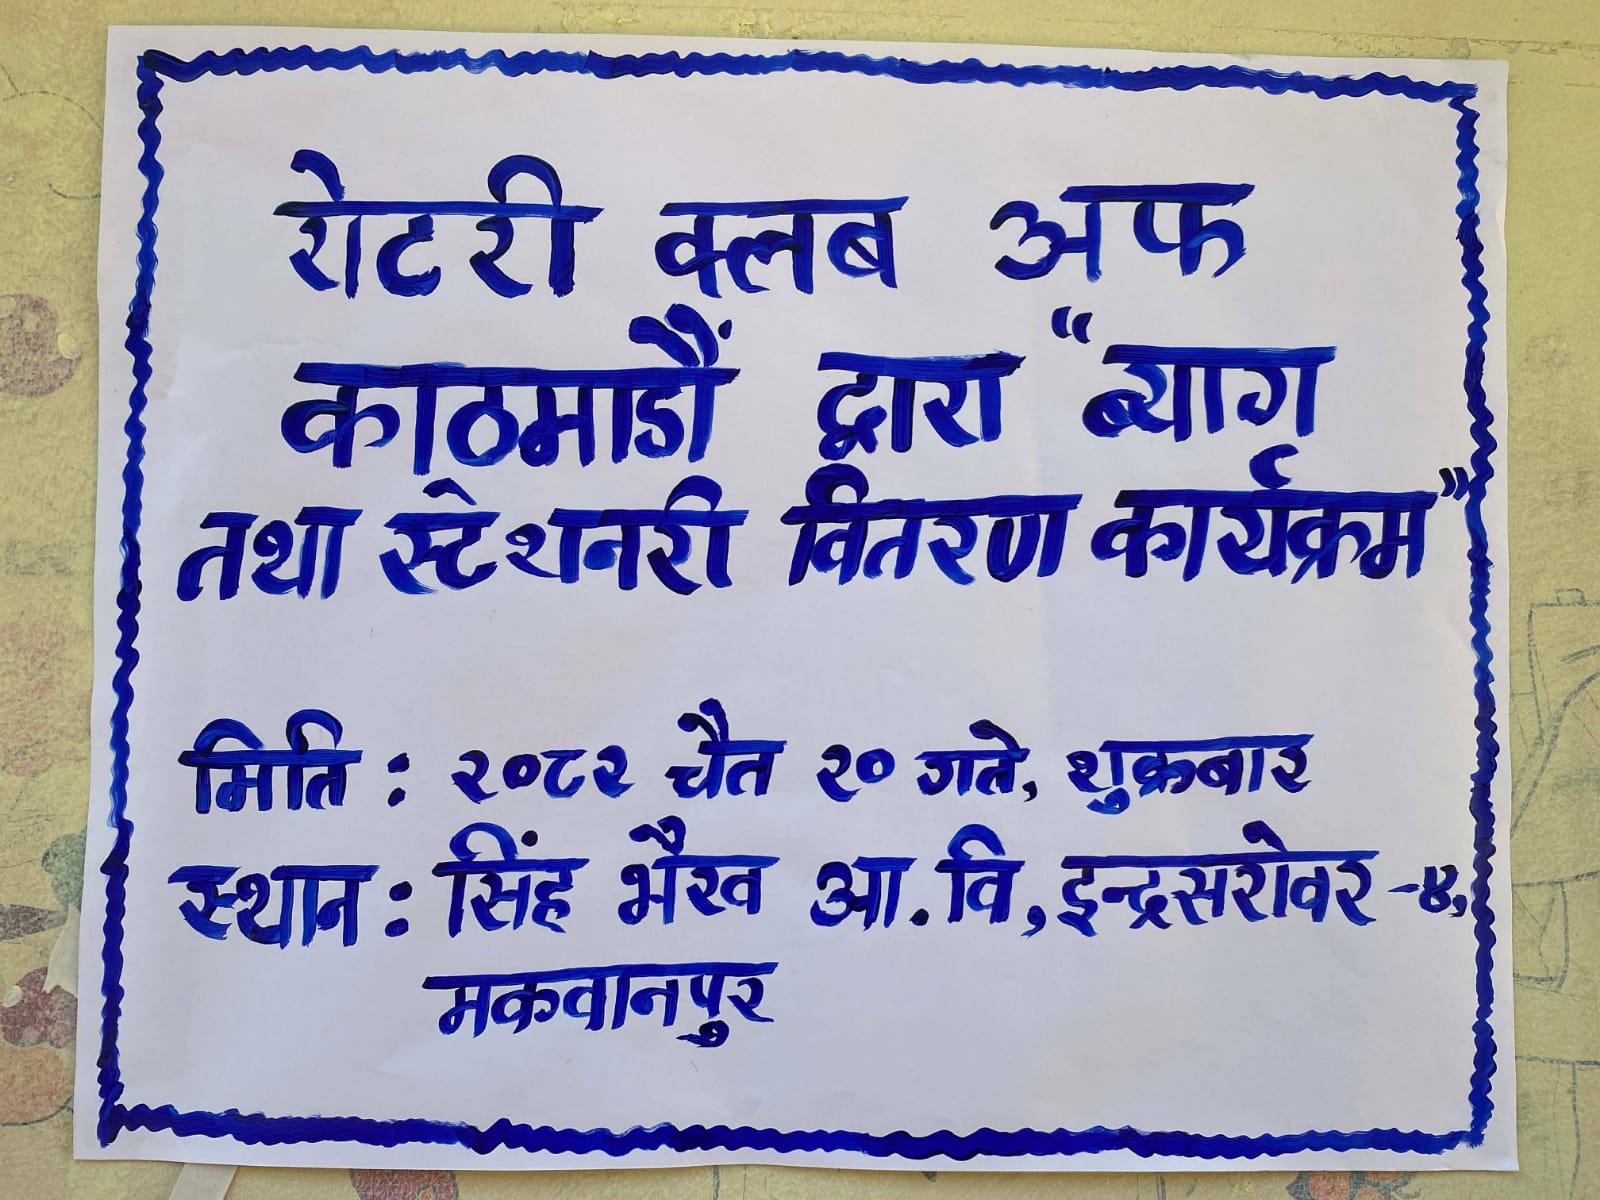 रोटरी क्लब अफ
काठमाडौं द्वारा "ब्याग
तथा स्टेशनरी वितरण कार्यक्रम"
मिति : २०८२ चैत २० गते, शुक्रबार
स्थान : सिंह भैरव आ. वि, इन्द्रसरोवर -४,
मकवानपुर